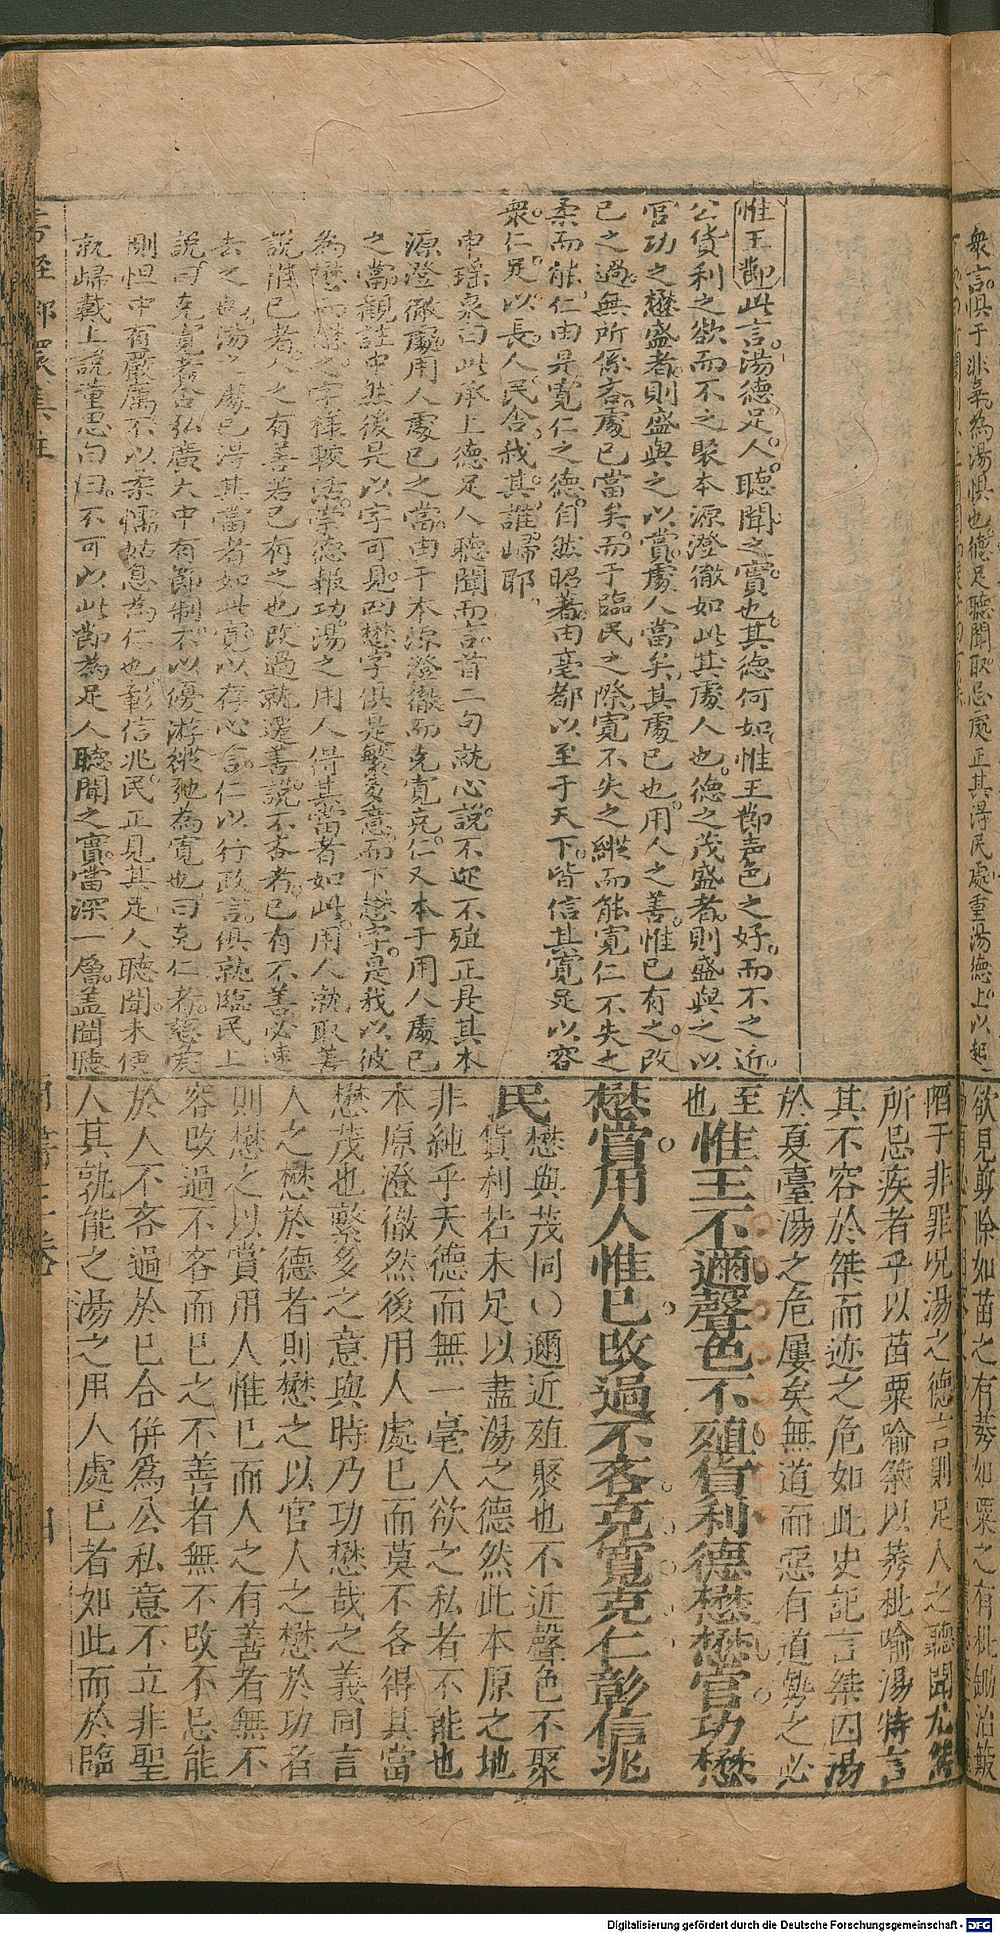 惟王節此言湯德足人聽聞之實也其德何如惟王節声色之好而不之近
公貨利之欲而不之聚本源澄徹如此其處人也德之茂盛者則盛與之以
官功之懋盛者則盛與之以賞處人當矣其處已也用人之善惟已有之改
已之過無所係吝處已當矣而于臨民之際寬不失之縱而能寬仁不失之
柔而能仁由是寬仁之德自然昭著由亳都以至于天下皆信其寬足以容
衆仁足以長人民舍我其誰歸耶
申瑤泉曰此承上德足人聽聞而言首二句就心說不迩不殖正是其本
源澄徹處用人處已之當由于本源澄徹而克寬克仁又本于用人處已
之當觀註中然後是以字可見四懋字俱是繁多意而下懋字是我以彼
為懋而懋之字樣較活崇德報功湯之用人得其當者如此用人就取善
說惟已者人之有善若已有之也改過就遷善說不吝者已有不善必速
去之也湯之處已得其當者如此寬以存心言仁以行政言俱就臨民上
說曰克寬者含弘廣大中有節制不以優游縱弛為寬也曰克仁者慈惠
惻怛中有嚴厲不以柔懦姑息為仁也彰信兆民正見其足人聽聞未便
就歸戴上說董思白曰不可以此節為足人聽聞之實當深一層盖聞聽
欲見剪除如苗之有莠如粟之有秕鋤治簸
𨻶于非罪况湯之德言則足人之聽聞尤桀
所忌疾者乎以苗粟喻桀以莠秕喻湯特言
其不容於桀而迹之危如此史記言桀囚湯
於夏臺湯之危屢矣無道而惡有道勢之必
至也
惟王不邇聲色不殖貨利德懋懋官功懋
懋賞用人惟已改過不吝克寬克仁彰信兆
民
懋與茂同○邇近殖聚也不近聲色不聚
貨利若未足以盡湯之德然此本原之地
非純乎天德而無一毫人欲之私者不能也
本原澄徹然後用人處已而莫不各得其當
懋茂也繁多之意與時乃功懋哉之義同言
人之懋於德者則懋之以官人之懋於功者
則懋之以賞用人惟已而人之有善者無不
容改過不吝而已之不善者無不改不忌能
於人不吝過於已合併爲公私意不立非聖
人其孰能之湯之用人處已者如此而於臨
Digitalisierung gefördert durch die Deutsche Forschungsgemeinschaft - DFG